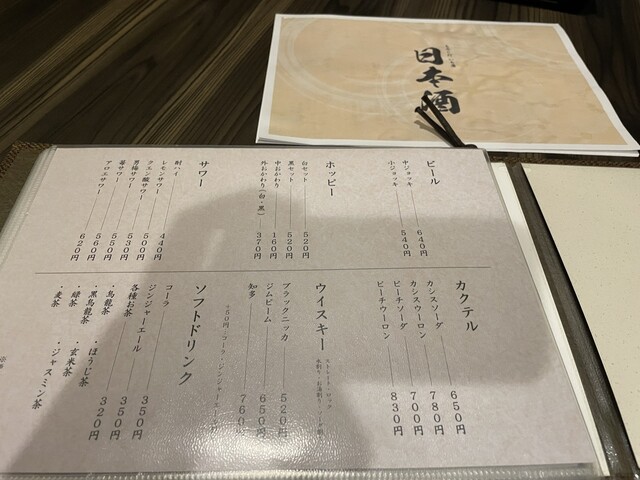 日本酒
ビール
中ジョッキ 640円
小ジョッキ 540円
ホッピー
白セット 520円
黒セット 520円
中おかわり 160円
外おかわり(白・黒) 370円
サワー
酎ハイ 440円
レモンサワー 500円
クエン酸サワー 530円
男梅サワー 550円
苺サワー 560円
アロエサワー 620円
カクテル
カシスソーダ 650円
カシスウーロン 780円
ピーチソーダ 700円
ピーチウーロン 830円
ウイスキー
ストレート・ロック
水割り・お湯割り・ソーダ割
ブラックニッカ 520円
ジムビーム 650円
知多 760円
+50円
ソフトドリンク
コーラ 350円
ジンジャーエール 350円
各種お茶 320円
・烏龍茶 ・ほうじ茶
・黒烏龍茶
・緑茶 ・玄米茶
・麦茶 ・ジャスミン茶